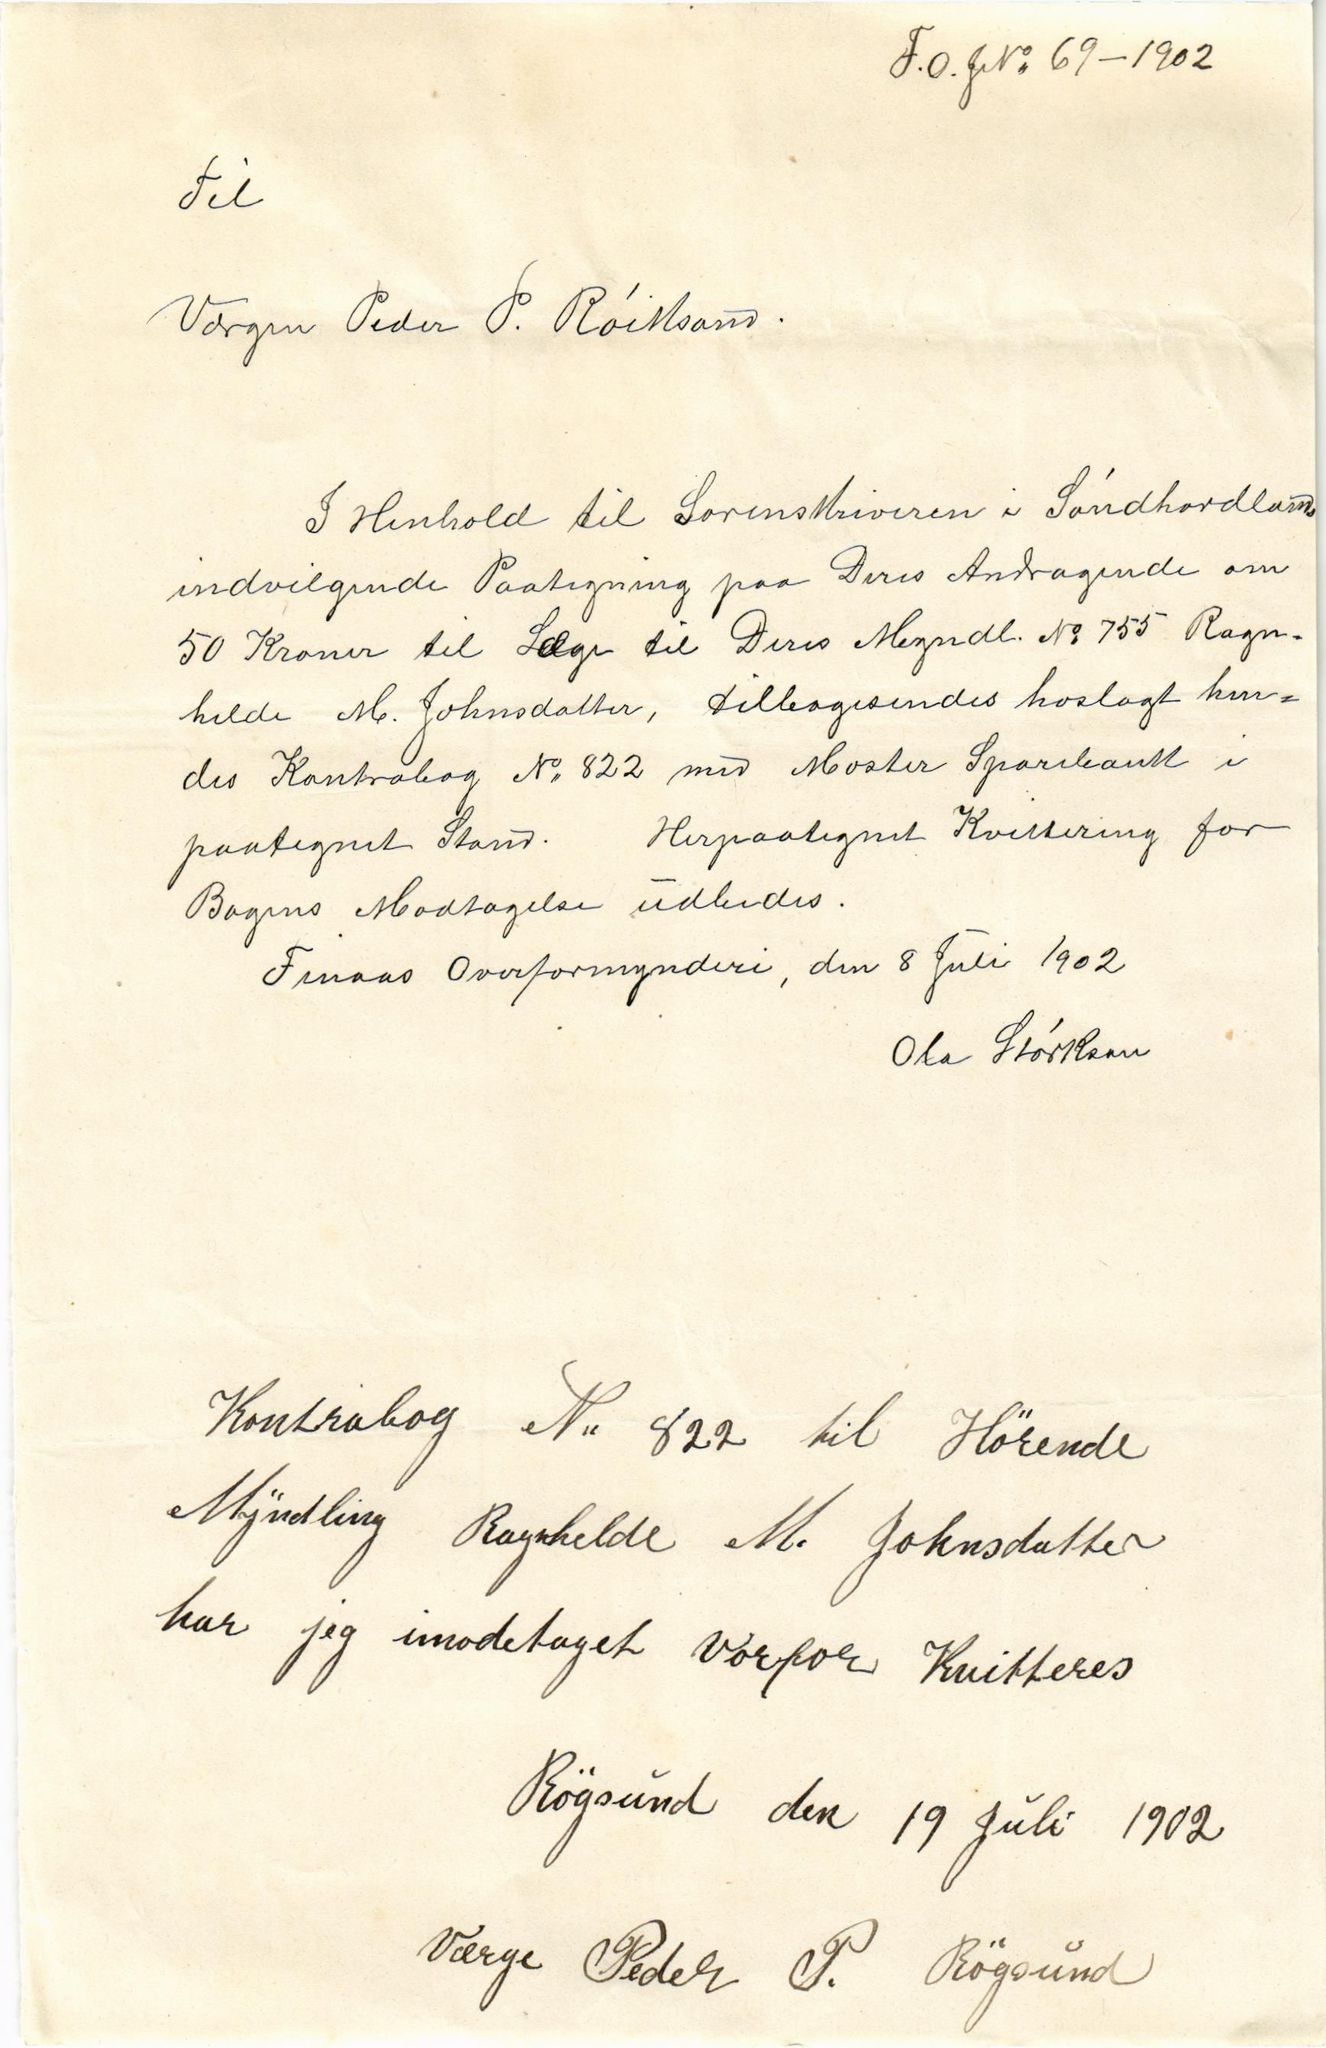 F.O.J№ 69-1902
Til
Værgen Peder P. Röiksund.
I Henhold til Sorenskriveren i Söndhordlands
indvilgende Paategning paa Deres Andragende om
50 Kroner til Læge til Deres Myndl. № 755 Ragn=
hilde M. Johnsdatter, tilbagesendes hoslagt hen=
des Kontrabog № 822 med Moster Sparebank i
paategnet Stand. Herpaategnet Kvittering for
Bogens Modtagelse udbedes.
Finaas Overformynderi, den 8 Juli 1902
Ola Störkson
Kontrabog N" 822 til Hörende
Myndling Ragnhelde M. Johnsdatter
har jeg imodetaget vorfor Kvitteres
Rögsund den 19 Juli 1902
Værge Peder P. Rögsund